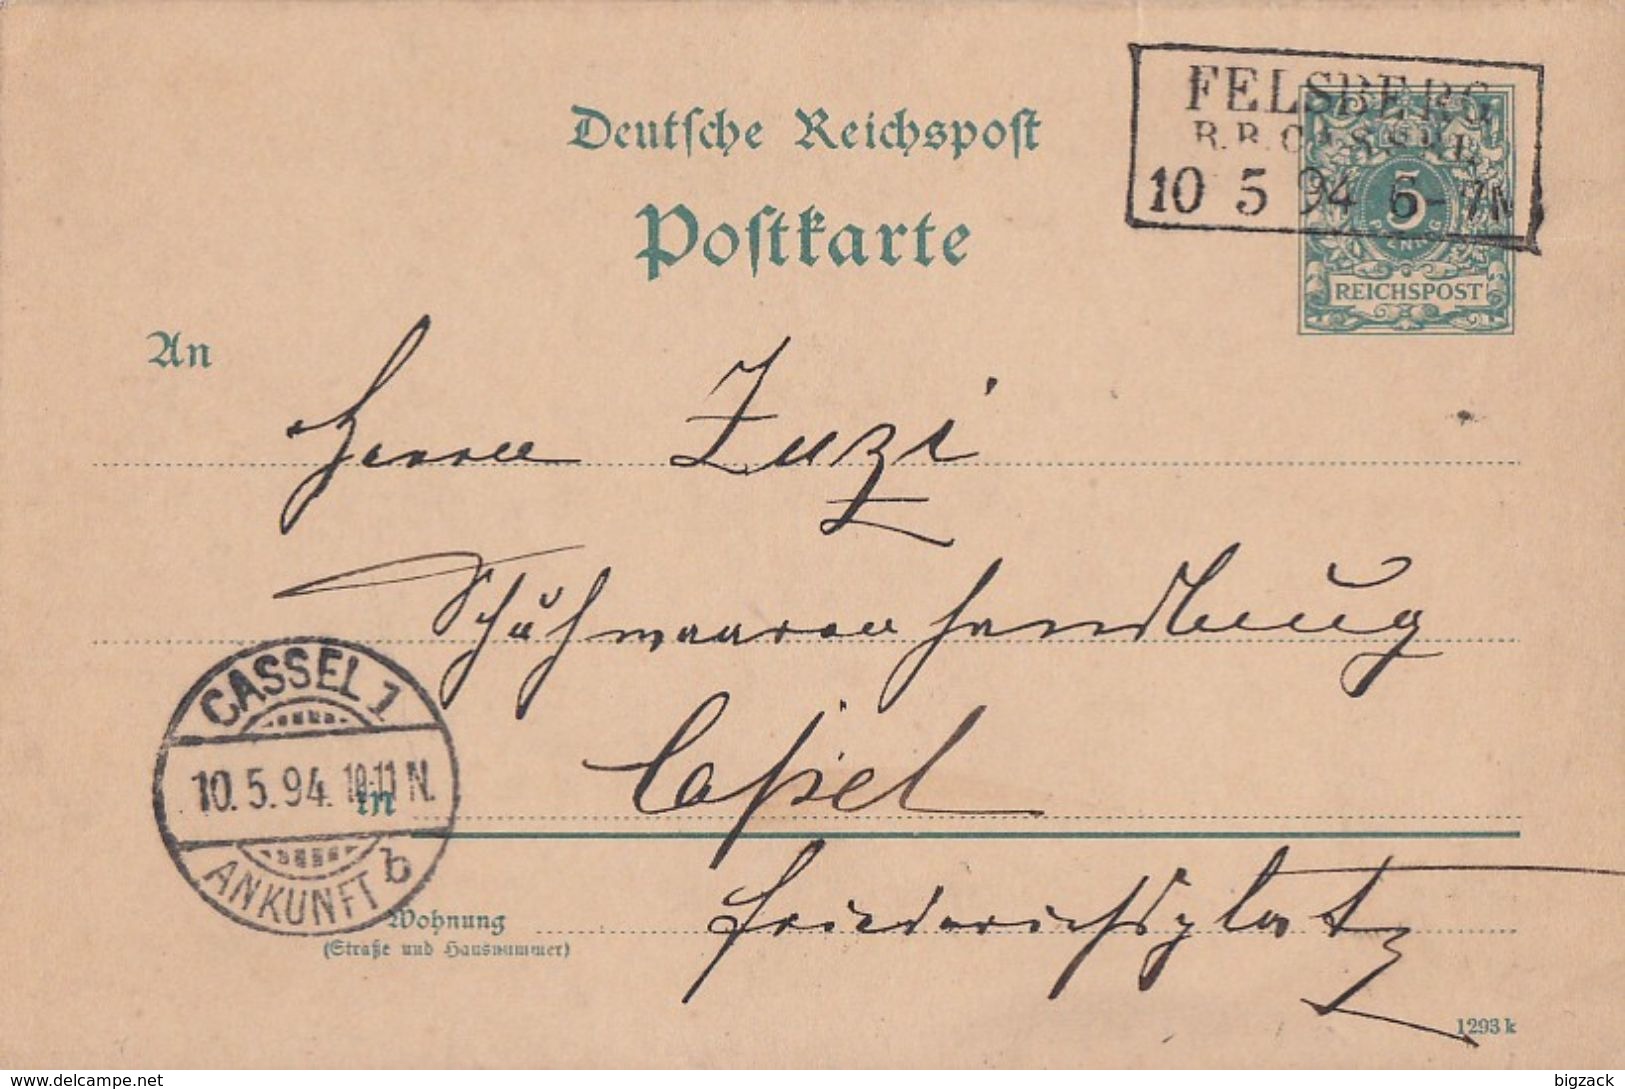 Deutsche Reichspost
Postkarte
FELSBERG
R.B.CASSEL
10 5 94 6-7N
5
PFENNIG
REICHSPOST
An
Herrn
Schuhwaarenhandlung
CASSEL 1
10.5.94. 10-11 N.
ANKUNFT b
in Cassel
Wohnung Friedrichsplatz
(Straße und Hausnummer)
1293 k
delcampe.net
bigzack